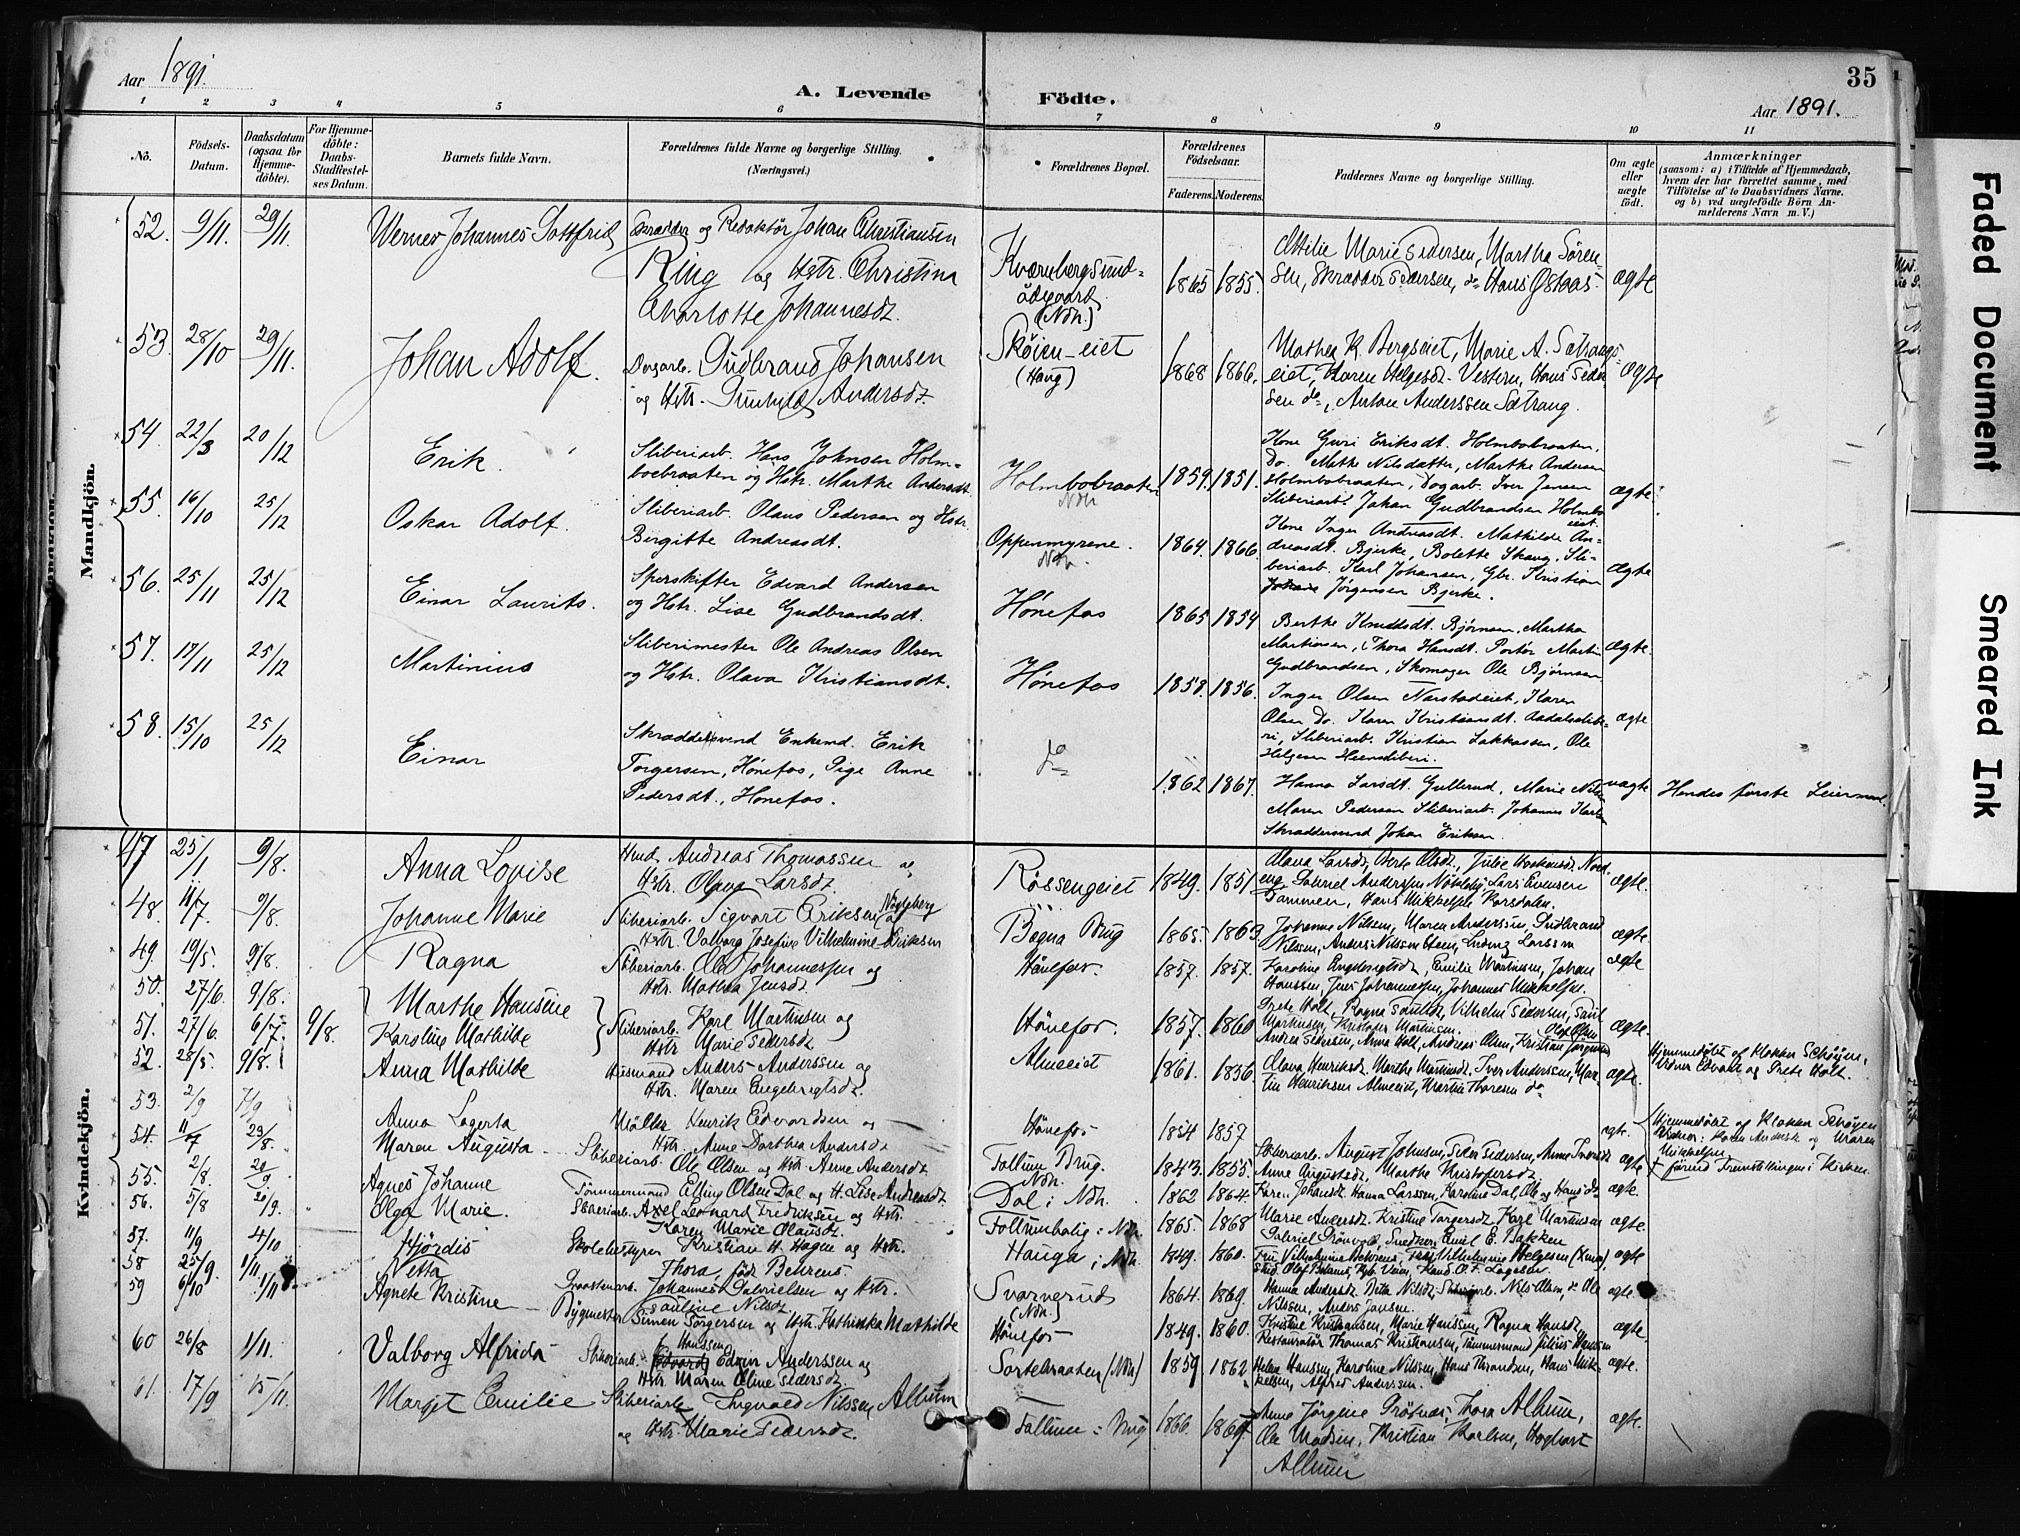 Aar 1891.
A. Levende Födte.
35
Aar 1891.
1 2 3 4 5 6 7 8 9 10 11
No.
Födsels-Datum.
Daabsdatum (ogsaa for Hjemme-döbte).
For Hjemme-döbte: Daabs-Stadfæstel-ses Datum.
Barnets fulde Navn.
Forældrenes fulde Navne og borgerlige Stilling.
(Næringsvei.)
Forældrenes Bopæl.
Forældrenes Födselsaar.
Faderens. Moderens.
Faddernes Navne og borgerlige Stilling.
Om ægte eller uægte födt.
Anmærkninger
(saasom: a) i Tilfælde af Hjemmedaab, hvem der har forrettet samme, med Tilföielse af to Daabsvidners Navne, og b) ved uægtefödte Börn An-melderens Navn m. V.)
Mandkjön.
52. 9/11. 29/11. Werner Johannes Gottfried Skrædder og Redaktör Johan Christiansen
Ring og Hstr. Christina
Charlotte Johannesdt.
Kværnbergsund-
ødegaard
(Ndh.)
1865 1855.
Marie Pedersen, Martha Sören-
sen, Skrædder Pedersen, do Hans Østaas
ægte
53. 28/10 29/11. Johan Adolf. Dagarb. Gudbrand Johansen
og Hstr. Gunhild Andersdt.
Skøien-eiet
(Haug)
1868 1866.
Mathea K. Bergseiet, Marie A. Sætrang-
eiet, Karen Helgesdt. Vestern, Hans Peder-
sen do, Anton Anderssen Sætrang.
ægte
54. 22/3 20/12 Erik. Sliberiarb. Hans Johnsen Holm-
boebraaten og Hstr. Marthe Andersdt.
Holmbobraaten
Ndh
1859. 1851.
Kone Guri Eriksdt. Holmbobraaten,
Do. Mathe Nilsdatter, Marthe Andersen
Holmbobraaten, Dagarb. Iver Jensen
Sliberiarb. Johan Gudbrandsen Holmbo
eiet.
ægte
55. 16/10 25/12 Oskar Adolf. Sliberiarb. Olaus Pedersen og Hstr.
Birgitte Andreasdt.
Oppenmyrene.
Ndh.
1864. 1866.
Kone Inger Andreasdt. Mathilde An-
dreasdt. Bjerke, Bolette Skaug, Sli-
beriarb. Karl Johansen, Gbr. Kristian
Jørgensen Bjerke.
ægte
56. 25/11 25/12 Einar Laurits. Sporskifter Edvard Andersen
og Hstr. Lise Gudbrandsdt.
Hønefos
1865 1854
Berthe Knudsdt. Bjørnsen, Martha
Martinsen, Thora Hansdt. Portør Martin
Gudbrandsen, Skomager Ole Bjørnsen
ægte.
57. 17/11 25/12 Martinius Sliberimester Ole Andreas Olsen
og Hstr. Olava Kristiansdt.
Hønefos
1858. 1856.
Inger Olsen Narstadeiet, Karen
Olsen Do. Karen Kristiansdt. Aadalsslibe-
ri, Sliberiarb. Kristian Lakkassen, Ole
Helgesen Heensliberi.
ægte
58. 15/10 25/12 Einar Skræddersvend Enkemd. Erik
Torgersen, Hønefos, Pige Anne
Pedersdt., Hønefos.
do
1862 1867.
Hanna Larsdt. Gullerud, Marie Nilsen
Maren Pedersen Sliberiarb. Johannes Karlsen
Skræddersvend Johan Eriksen.
uægte
Hendes første Leiermaal.
Kvindekjön.
47 25/1 9/8. Anna Lovise Hmd. Andreas Thomassen og
Hstr. Olava Larsdt.
Røssengeiet 1849. 1851
Olava Larsdt, Berte Olsdt., Julie
Gabriel Anderssen Lars Evensen
Dammen, Hans Mikkelsen Korsdalen.
ægte.
48. 11/7. 9/8. Johanne Marie Sliberiarb. Sigvart Eriksen
Hstr. Valborg Josefine Vilhelmine Eriksen
Bægna Brug 1865. 1863
Johanne Nilsen, Maren Anderssen Gudbrand
Nilssen, Anders Nilssen Steen, Ludvig Larssen
ægte
49. 19/5. 9/8. Ragna Sliberiarb. Ole Johannessen og
Hstr. Mathea Jensdt.
Hönefos. 1857. 1857.
Karoline Engebregtsdt, Emilie Martinsen, Johan
Hanssen, Jens Johannessen, Johannes Mikkelsen.
ægte
50. 27/6. 9/8. Marthe Hansine
51. 27/6 6/7 9/8. Karoline Mathilde
Sliberiarb. Karl Martinsen og
Hstr Marie Pedersdt
Hönefos. 1857. 1860
Grete Holt, Ragna Vilhelm Pedersen, Paul
Martinsen, Kristofer Martinsen. Olaf Olsen
Andrea Pedersen, Anna Holt, Andreas Olsen, Kristian Jørgensen
ægte.
Hjemmedøbt af Klokker Schøyen,
Vidner Edvald og Grete Holt.
52. 28/5 9/8. Anna Mathilde Husmand Anders Anderssen og
Hstr. Maren Engebregtsdt.
Almeeiet 1861. 1856
Olava Henriksdt. Marthe Martinsdt. Iver Anderssen, Mar-
tin Henriksen Almeeiet, Martin Thoresen do
ægte.
53. 2/9 7/9 Anna Lagerta Möller Henrik Edvardsen og
Hstr. Anne Dorthea Andersdt
Hönefos 1854 1857
ægte.
Hjemmedøbt af Klokker Schøyen
Vidner: Karen og Maren
Mikkelsen
+ førend Fremstillingen i Kirken
54. 11/7 23/8. Maren Augusta Sliberiarb. Ole Olsen og Hstr. Anne Andersdt
Follum Brug.
Ndh.
1843. 1855.
Sliberiarb. August Johnsen, Peder Pedersen, Anne Iversdt
Anne Augustsdt, Marthe Kristofersdt
ægte
55. 2/8. 20/9 Agnes Johanne Tömmermand Elling Olsen Dal og H. Lise Andreasdt
Dal i Ndh. 1862 1864.
Karen Johansdt. Hanna Larssen, Karoline Dal, Ole og Hans do
ægte.
56. 5/8 20/9. Olga Marie. Sliberiarb. Axel Leonard Fredriksen og Hstr.
Karen Marie Olausdt.
Follumbolig i Ndh. 1865. 1868
Marie Andersdt. Kristine Torgersdt. Karl Martinsen
Gabriel Grönvold, Snedker Emil E. Bakken
ægte.
57. 11/9 4/10 Hjördis Skolebestyrer Kristian H. Hagne og Hstr.
Thora, född Behrens.
Hauga i Ndh. 1849. 1860.
Fru Vilhelmine Behrens, Fru Vilhelmine Helgesen (Xnia),
Stud. Olaf Behrens, Kand. O. F. Lagesen
ægte
58 25/9. 1/11. Petra Graastenarb. Johannes Gabrielsen og Hstr.
Pauline Nilsdt
Svarverud
(Ndh.)
1864. 1869.
Hanna Andersdt. Ditta Nilsdt. Sliberiarb. Nils Olsen, do Ole
Nilssen, Anders Jansen.
ægte
59 6/10 1/11 Agnete Kristine Bygmester Simen Jörgensen og Hstr. Kathinka Mathilde
Hanssen
Hönefos 1849. 1860.
Kristine Kristiansen, Marie Hanssen, Ragna Hansdt,
Restauratör Thomas Kristiansen, Tömmermand Julius Hanssen
ægte
60 26/8 1/11. Valborg Alfrida Sliberiarb. Edvard Edvin Anderssen og
Hstr Maren Oline Pedersdt.
Sortebraaten (Ndh) 1859 1862
Helene Hanssen, Karoline Nilssen, Hans Thrandsen, Hans Mik-
kelsen, Alfred Anderssen.
ægte.
61. 17/9 15/11. Margit Emilie Sliberiarb. Ingvald Nilssen Alhum
og Hstr. Marie Pedersdt.
Follum Brug 1866. 1867
Anne Jørgine Grötnæs, Thora Alhum,
Ole Madsen, Kristian Karlsen, Haghart
Alhum
ægte.
Faded Document
Smeared Ink